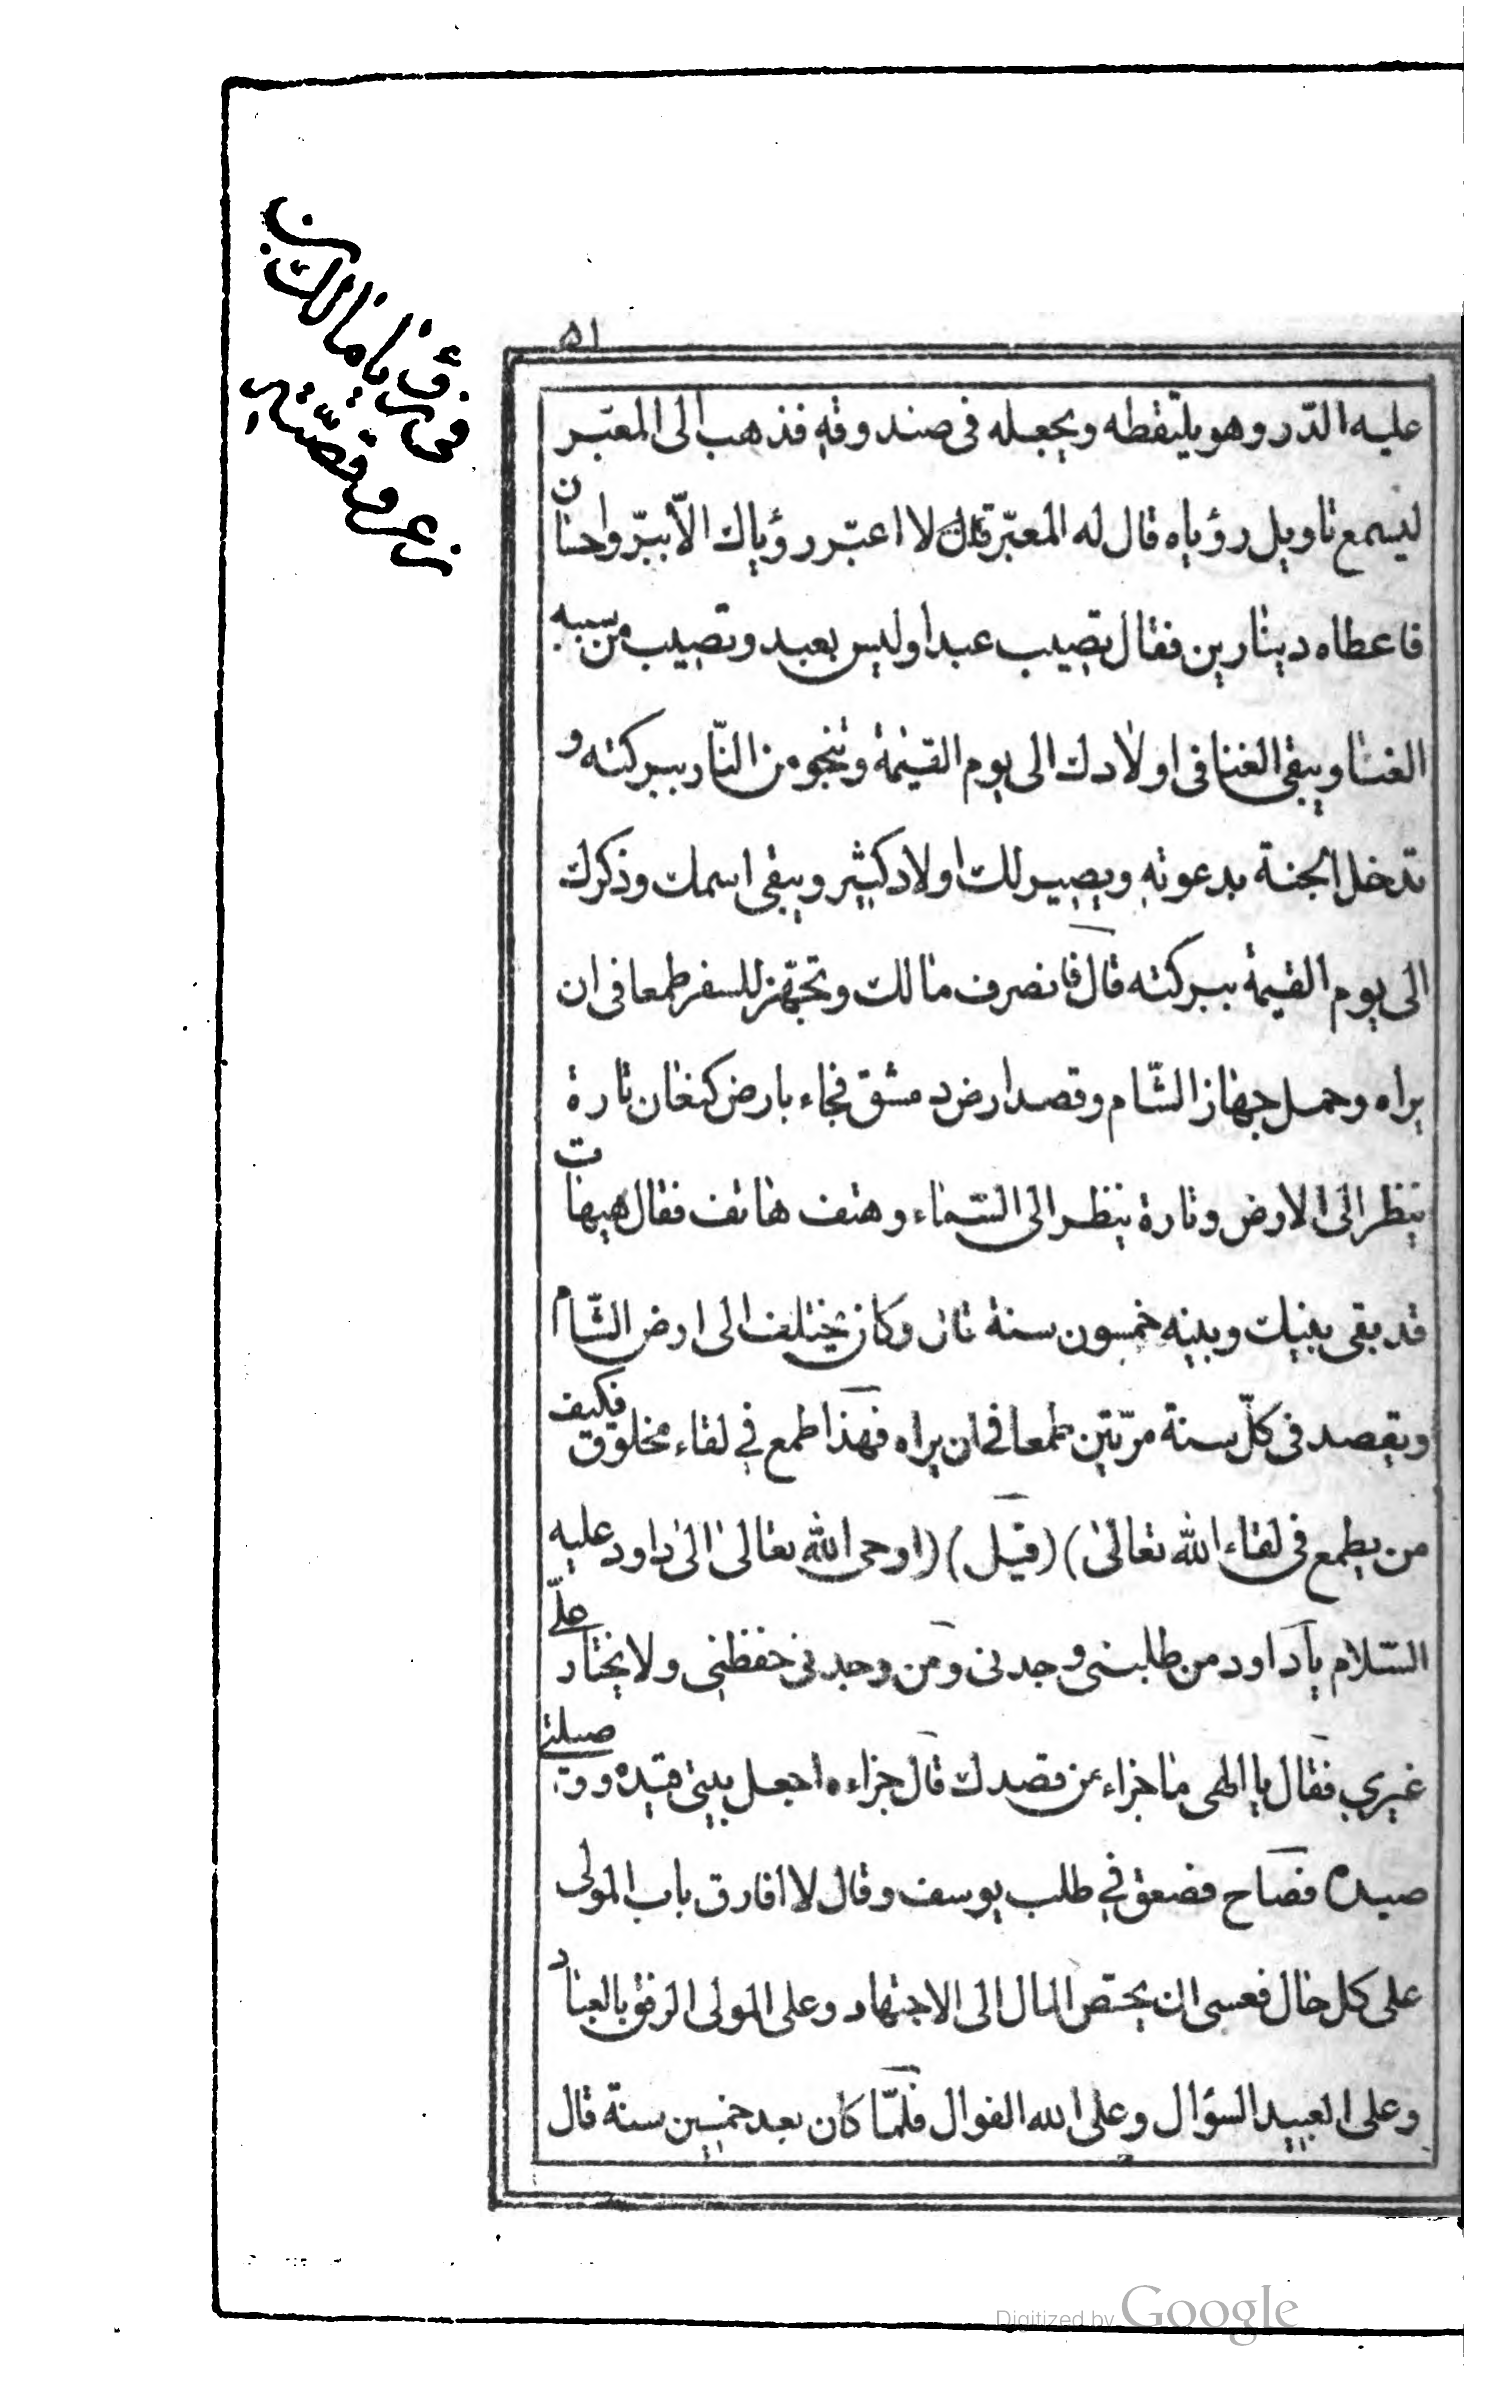 ۵۱
في رؤيا مالك بن
زعر وقصّته
عليه الدّر وهو يلتقطه ويجعله فى صندوقه فذهب الى المعبّر
ليسمع تاويل رؤياه قال له المعبّر لا اعبّر رؤياك الاّ ببرّ واحسان
فاعطاه دينارين فقال تصيب عبدا وليس بعبد وتصيب من سببه
الغنا ويبقى الغنا فى اولادك الى يوم القيمة وتنجو من النّار ببركته و
تدخل الجنة بدعوته ويصير لك اولاد كثير ويبقى اسمك وذكرك
الى يوم القيمة ببركته قال فانصرف مالك وتجهّز للسفر طمعا فى ان
يراه وحمل جهاز الشّام وقصد ارض دمشق فجاء بارض كنعان تارة
ينظر الى الارض وتارة ينظر الى السّماء وهتف هاتف فقال هيهات
قد بقى بينك وبينه خمسون سنة وكان يختلف الى ارض الشّام
ويقصد فى كلّ سنة مرّتين طمعا فى ان يراه فهذا طمع في لقاء مخلوق فكيف
من يطمع فى لقاء الله تعالى) (قيل) (اوحى الله تعالى الى داود عليه
السّلام يا داود من طلبنى وجدنى ومن وجدنى حفظنى ولا يختار علىّ
غيري فقال يا الهى ما جزاء من قصدك قال جزاءه اجعل بينى قيده و صلتى
صيده فصاح فصعق في طلب يوسف وقال لا افارق باب المولى
على كل حال فعسى ان يختص المال الى الاجتهاد وعلى المولى الرفق بالعباد
وعلى العبيد السؤال وعلى الله النوال فلمّا كان بعد خمسين سنة قال
Digitized by Google